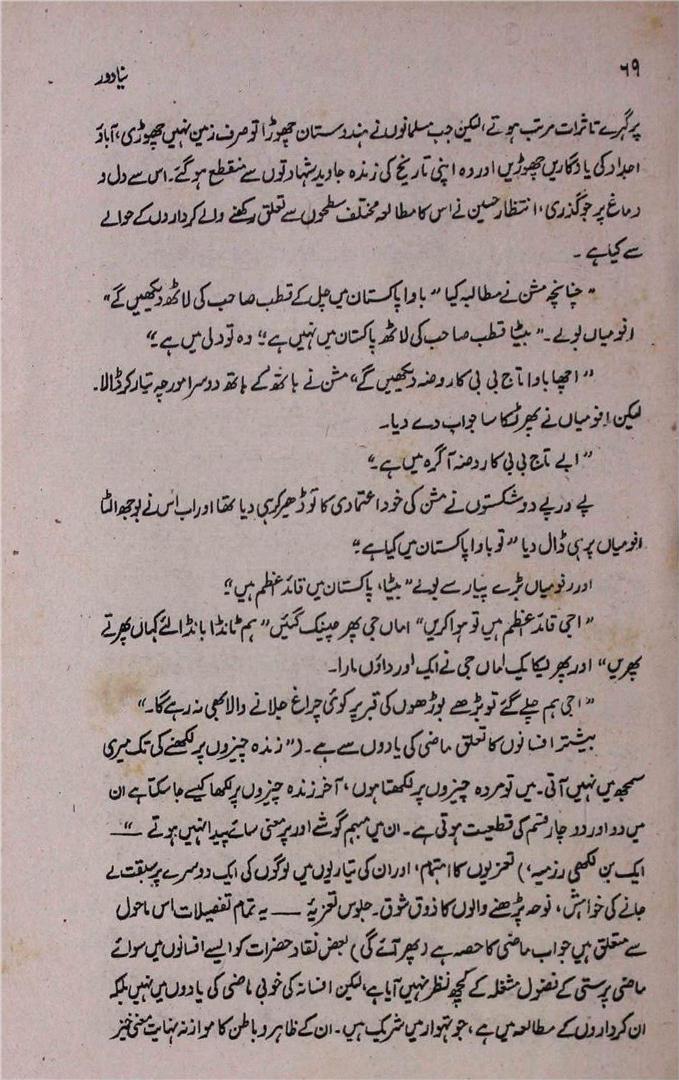 ۶۹
نیا دور
پر گہرے تاثرات مرتب ہوتے، لیکن جب مسلمانوں نے ہندوستان چھوڑا تو صرف زمین نہیں چھوڑی، آباؤ
اجداد کی یادگاریں چھوڑیں اور وہ اپنی تاریخ کی زندہ جاوید شہادتوں سے منقطع ہو گئے۔ اس سے دل و
دماغ پر جو گذری، انتظار حسین نے اس کا مطالعہ مختلف سطحوں سے تعلق رکھنے والے کرداروں کے حوالے
سے کیا ہے۔
"چنانچہ مشن نے مطالبہ کیا "باوا پاکستان میں چل کے قطب صاحب کی لاٹھ دیکھیں گے"
افو میاں بولے۔ "بیٹا قطب صاحب کی لاٹھ پاکستان میں نہیں ہے"، وہ تو دلی میں ہے"
"اچھا باوا تاج بی بی کا روضہ دیکھیں گے" مشن نے ہاتھ کے ہاتھ دوسرا مورچہ تیار کر ڈالا۔
لیکن افو میاں نے پھر ٹکا سا جواب دے دیا۔
"ابے تاج بی بی کا روضہ آگرہ میں ہے۔"
پے در پے دو شکستوں نے مشن کی خود اعتمادی کا تو ڈھیر کر ہی دیا تھا اور اب اس نے بوجھ الٹا
افو میاں پر ہی ڈال دیا "تو باوا پاکستان میں کیا ہے"
اور رفو میاں بڑے پیار سے بولے "بیٹا، پاکستان میں قائد اعظم ہیں"
"اجی قائد اعظم ہیں تو ہوا کریں" اماں جی پھر چینک گئیں "ہم ٹانڈا بانڈا لئے کہاں پھرتے
پھریں" اور پھر لیکا یک اماں جی نے ایک اور داؤں مارا۔
"اجی ہم چلے گئے تو بڑھے بوڑھوں کی قبر پر کوئی چراغ جلانے والا بھی نہ رہے گا۔"
بیشتر افسانوں کا تعلق ماضی کی یادوں سے ہے۔ ("زندہ چیزوں پر لکھنے کی تک میری
سمجھ میں نہیں آتی۔ میں تو مردہ چیزوں پر لکھتا ہوں، آخر زندہ چیزوں پر لکھا کیسے جا سکتا ہے ان
میں دو اور دو چار قسم کی قطعیت ہوتی ہے۔ ان میں مبہم گوشے اور پر معنی سائے پیدا نہیں ہوتے —"
ایک بن لکھی رزمیہ،) تعزیوں کا اہتمام، اور ان کی تیاریوں میں لوگوں کی ایک دوسرے پر سبقت لے
جانے کی خواہش، نوحہ پڑھنے والوں کا ذوق شوق۔ جلوس تعزیۂ — یہ تمام تفصیلات اس ماحول
سے متعلق ہیں جو اب ماضی کا حصہ ہے (پھر آئے گی) بعض نقاد حضرات کو ایسے افسانوں میں سوائے
ماضی پرستی کے فضول مشغلہ کے کچھ نظر نہیں آیا ہے، لیکن افسانہ کی خوبی ماضی کی یادوں میں نہیں بلکہ
ان کرداروں کے مطالعہ میں ہے، جو تہوار میں شریک ہیں۔ ان کے ظاہر و باطن کا موازنہ نہایت معنی خیز